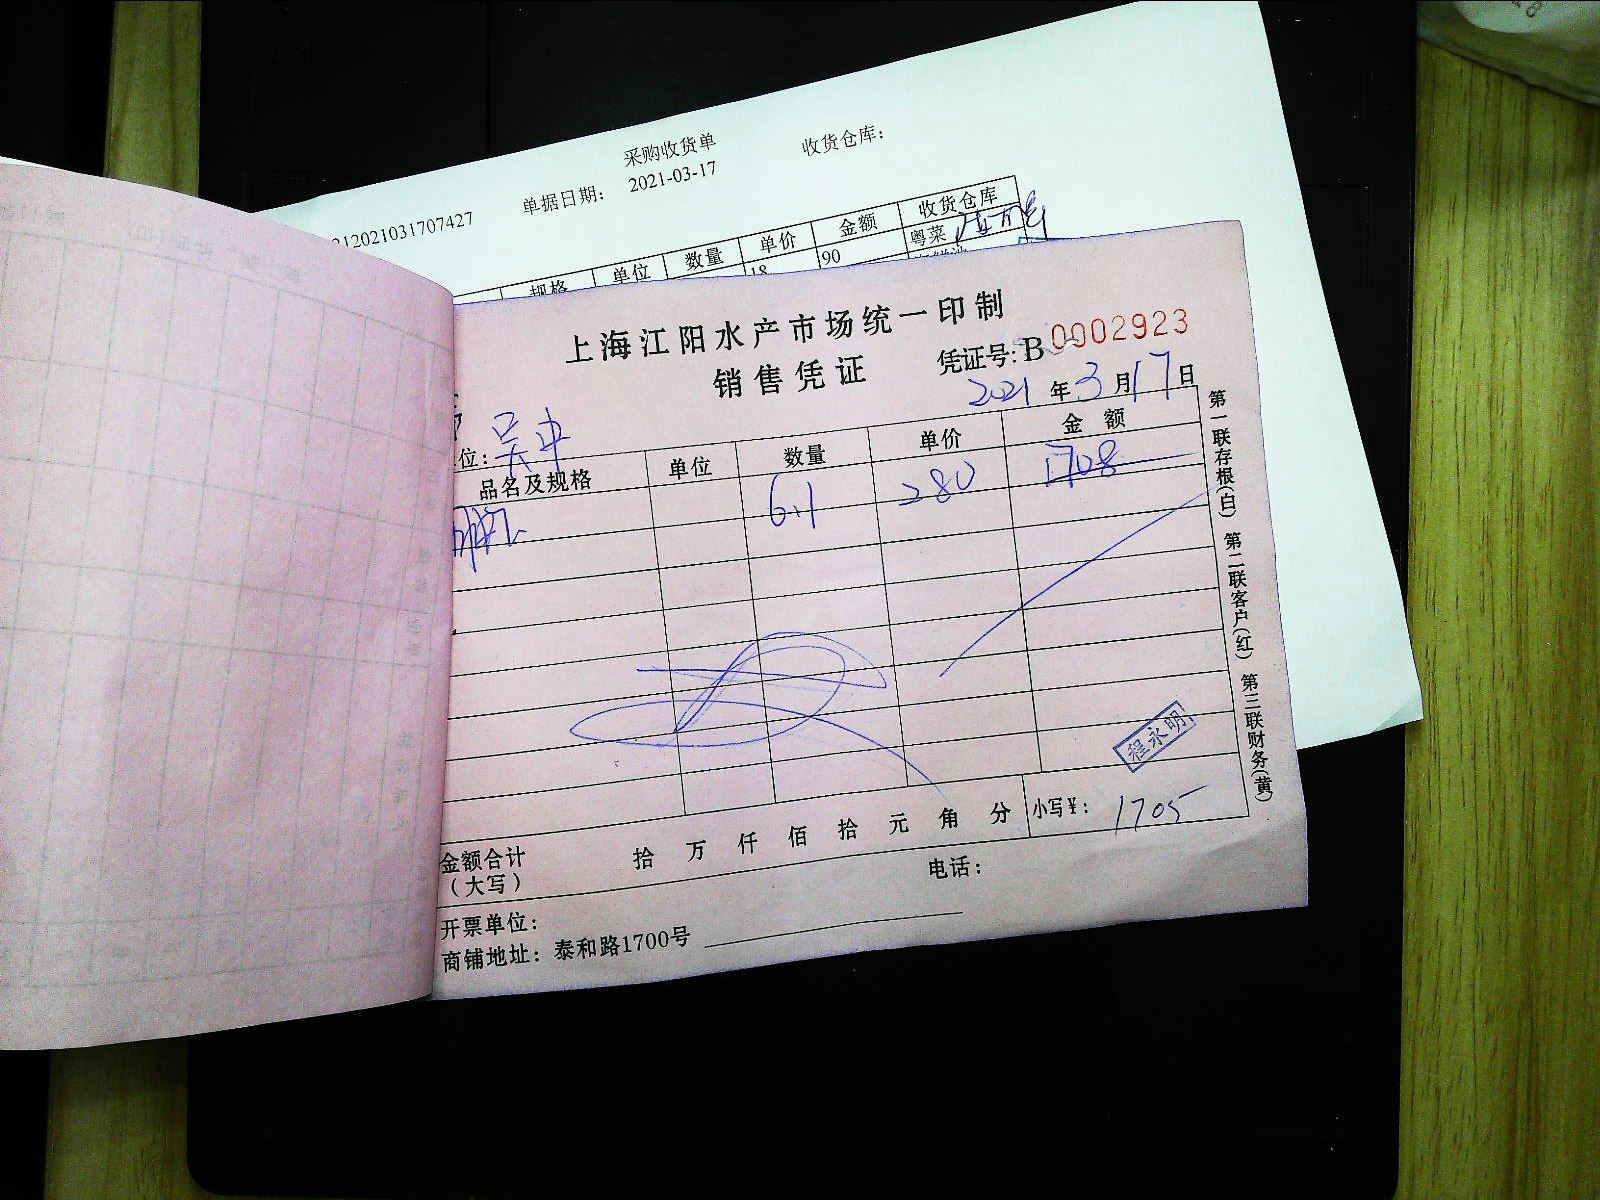 采购收货单
收货仓库:
212021031707427
单据日期: 2021-03-17
规格 单位 数量 单价 金额 收货仓库
18 90 粤菜
上海江阳水产市场统一印制
销售凭证 凭证号: B 0002923
2021 年 3 月 17 日
位: 吴中
品名及规格 单位 数量 单价 金额
6.1 280 1708
程永明
金额合计 (大写) 拾 万 仟 佰 拾 元 角 分 小写¥: 1705
电话:
开票单位:
商铺地址: 泰和路1700号
第一联存根(白) 第二联客户(红) 第三联财务(黄)